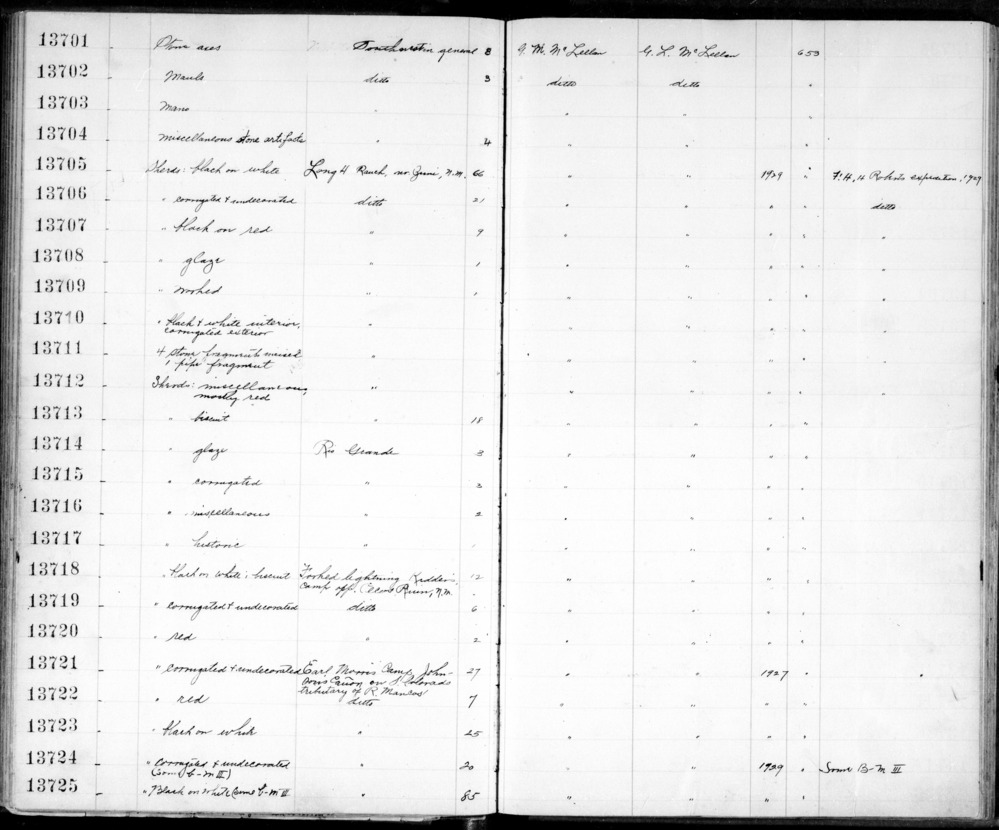 13701 Stone axes Southwestern general 8 G. M. McLellan G. L. McLellan 653
13702 Mauls ditto 3 ditto ditto "
13703 Mano " " " "
13704 Miscellaneous stone artifacts " 4 " " "
13705 Sherds: black on white Long H Ranch, nr. Zuni, N.M. 66 " " 1929 " F. H. H. Roberts expedition, 1929
13706 " corrugated & undecorated ditto 21 " " " " ditto
13707 " black on red " 9 " " " " "
13708 " glaze " 1 " " " " "
13709 " worked " 1 " " " " "
13710 " black & white interior, " " " " " "
corrugated exterior
13711 4 stone fragments incised " " " " " "
1 pipe fragment
13712 Sherds: miscellaneous, " " " " " "
mostly red
13713 " biscuit " 18 " " " "
13714 " glaze Rio Grande 3 " " " "
13715 " corrugated " 3 " " " "
13716 " miscellaneous " 2 " " " "
13717 " historic " " " " "
13718 " black on white; biscuit Forked lightning Kidder's 12 " " " "
camp opp. Pecos Ruin, N.M.
13719 " corrugated & undecorated ditto 6 " " " "
13720 " red " 2 " " " "
13721 " corrugated & undecorated Earl Morris Camp, John- 27 " " 1927 " "
son's Cañon on S. Colorado
tributary of R. Mancos
13722 " red ditto 7 " " " "
13723 " black on white " 25 " " " "
13724 " corrugated & undecorated " 20 " " 1929 " Some B-M III
(some B-M III)
13725 " Black on white (some B-M III " 85 " " " "